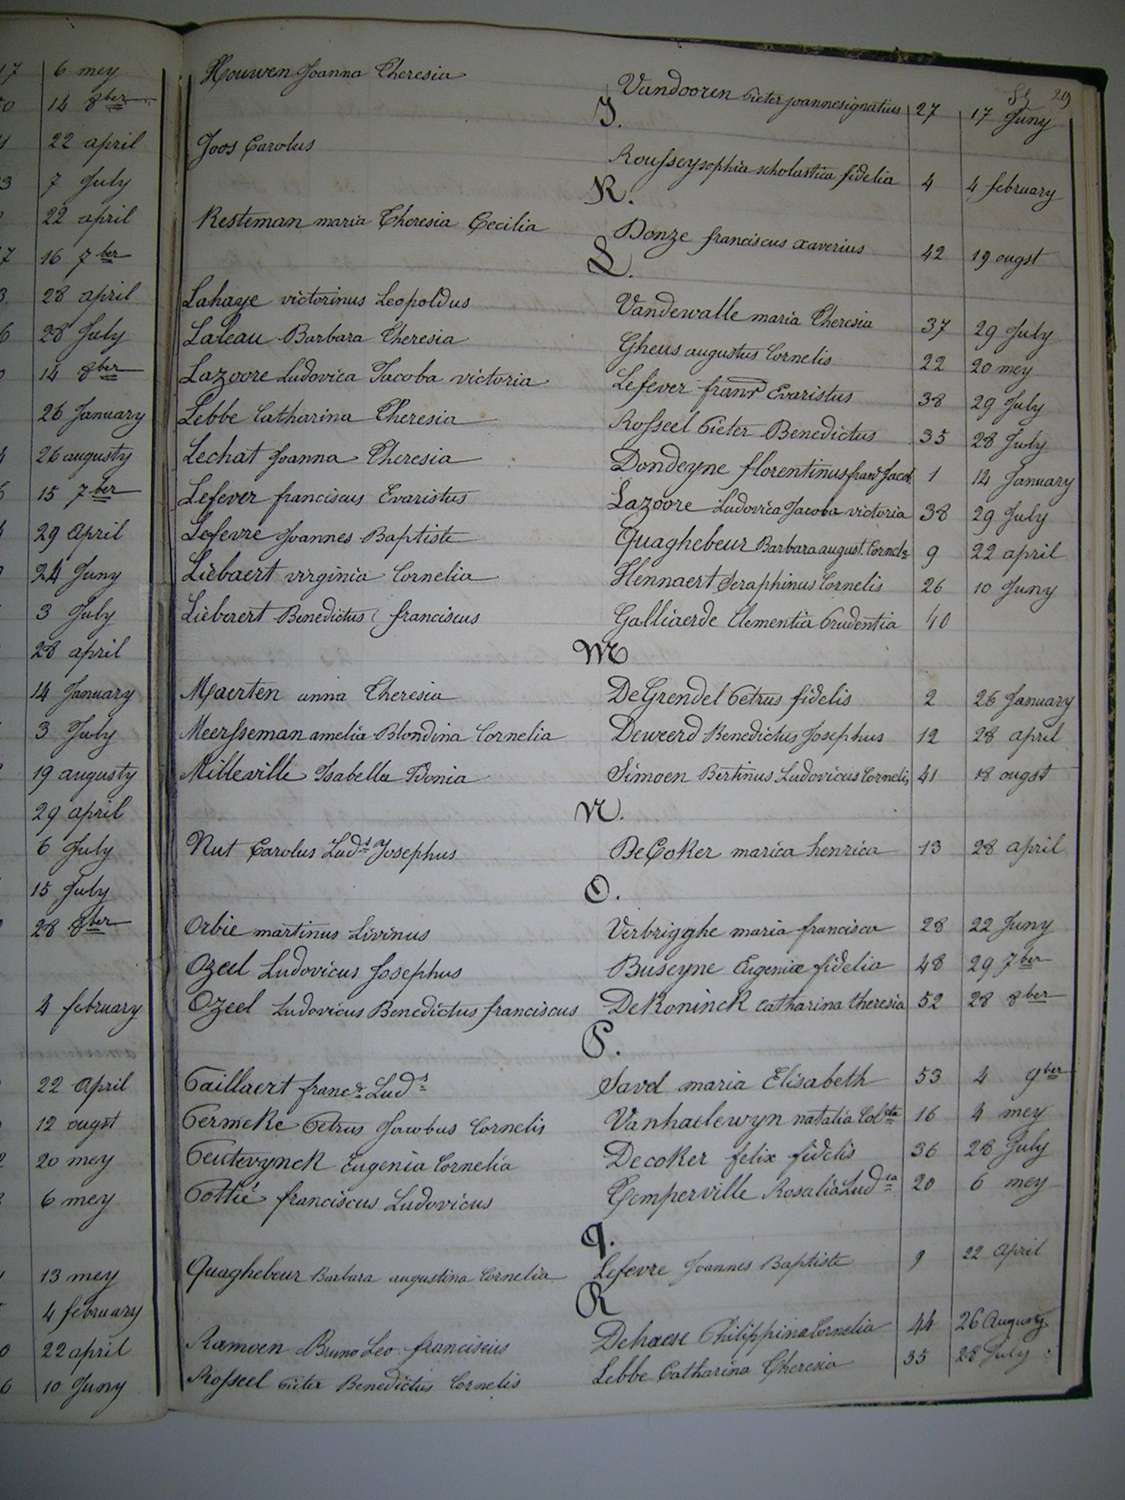 17 6 mey
0 14 8ber
22 april
3 7 July
22 april
7 16 7ber
3 28 april
6 28 July
14 8ber
26 January
26 augusty
15 7ber
29 April
24 Juny
3 July
28 april
14 January
3 July
19 augusty
29 april
6 July
15 July
28 8ber
4 february
22 April
12 ougst
20 mey
6 mey
13 mey
4 february
0 22 april
6 10 Juny
219
Houwen Joanna Theresia Vandooren Pieter joannesignatius 27 17 Juny
J.
Joos Carolus Rousseysophia scholastica fidelia 4 4 february
K.
Kesteman maria Theresia Cecilia Donze franciscus xaverius 42 19 ougst
L.
Lahaye victorinus Leopoldus Vandewalle maria Theresia 37 29 July
Laleau Barbara Theresia Gheus augustus Cornelis 22 20 mey
Lazoore Ludovica Jacoba victoria Lefever frans Evaristus 38 29 July
Lebbe Catharina Theresia Rosseel Pieter Benedictus 35 28 July
Lechat Joanna Theresia Dondeyne florentinus Jacob 1 14 January
Lefever franciscus Evaristus Lazoore Ludovica Jacoba victoria 38 29 July
Lefevre Joannes Baptiste Quaghebeur Barbara august. Cornela 9 22 april
Liebaert virginia Cornelia Hennaert Seraphinus Cornelis 26 10 Juny
Lieberert Benedictus franciscus Galliaerde Clementia Prudentia 40
M
Maerten anna Theresia DeGrendel Petrus fidelis 2 26 January
Meersseman amelia Blondina Cornelia Deweerd Benedictus Josephus 12 28 april
Milleville Isabella Bonia Simoen Bertinus Ludovicus Cornelis 41 18 ougst
N.
Nut Carolus Luds Josephus DeCoker marica henrica 13 28 april
O.
Orbie martinus Livinus Verbrigghe maria francisca 28 22 Juny
Ozeel Ludovicus Josephus Buseyne Eugenia fidelia 48 29 7ber
Ozeel Ludovicus Benedictus franciscus DeKoninck Catharina theresia 52 28 8ber
P.
Paillaert francs Luds Savel maria Elisabeth 53 4 9ber
Permeke Petrus Jacobus Cornelis Vanhaelewyn natalia Colta 16 4 mey
Peutevynck Eugenia Cornelia Decoker felix fidelis 36 28 July
Pottié franciscus Ludovicus Temperville Rosalia Ludca 20 6 mey
q.
Quaghebeur Barbara augustina Cornelia Lefevre Joannes Baptiste 9 22 April
R
Ramoen Bruno Leo franciscus Dehaese Philippina Cornelia 44 26 Augusty
Rosseel Pieter Benedictus Cornelis Lebbe Catharina Theresia 35 28 July